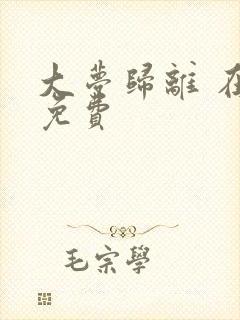 大夢歸離 在
免費
毛宗學